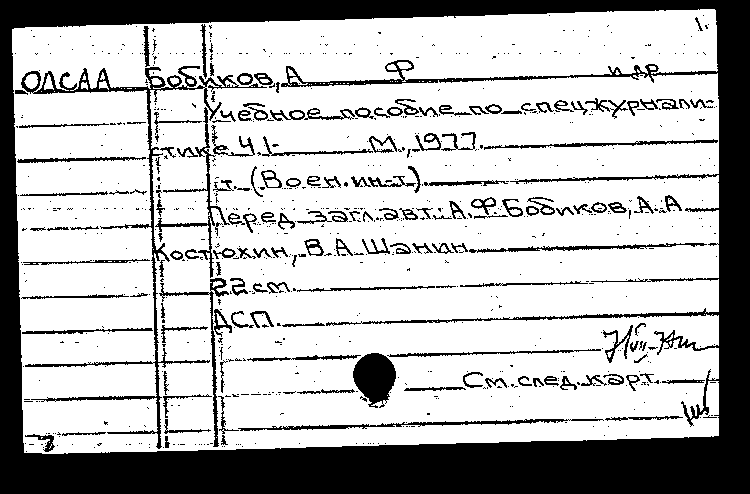 1.
ОЛСАА Бобиков, А Ф и др
Учебное пособие по спецжурнали-
стике Ч 1- М., 1977.
т. (Воен. ин-т).
Перед загл. авт.: А. Ф. Бобиков, А. А
Костюхин, В. А. Шанин.
22 см.
ДСП.
См. след. карт.